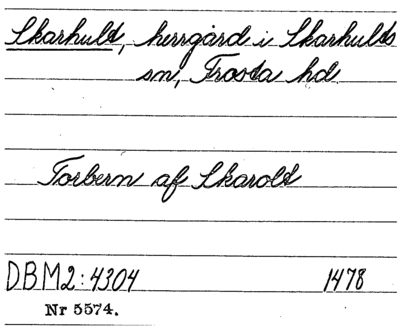 Skarhult, herrgård i Skarhults
sn, Frosta hd.
Torbern af Skarolt
DBM2:4304 1478
Nr 5574.